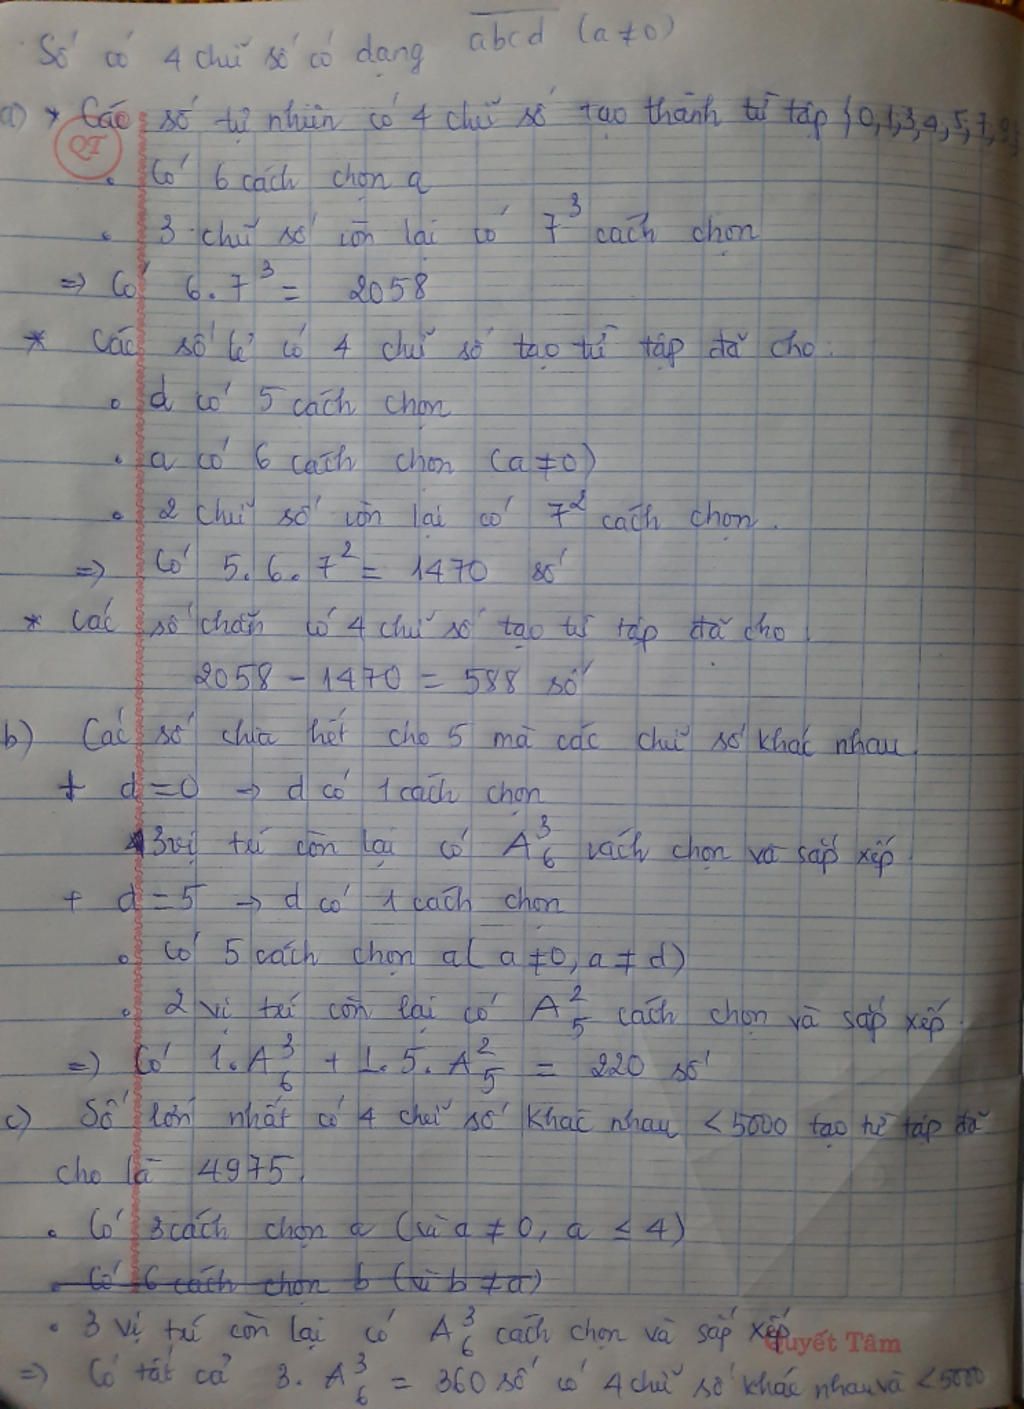 Số có 4 chữ số có dạng abcd (a ≠ 0)
a) * Các số tự nhiên có 4 chữ số tạo thành từ tập {0,1,3,4,5,7,9}
QT
. Có 6 cách chọn a
. 3 chữ số còn lại có 7³ cách chọn
=> Có 6.7³ = 2058
* Các số lẻ có 4 chữ số tạo từ tập đã cho:
. d có 5 cách chọn
. a có 6 cách chọn (a ≠ 0)
. 2 chữ số còn lại có 7² cách chọn.
=> Có 5.6.7² = 1470 số
* Các số chẵn có 4 chữ số tạo từ tập đã cho
2058 - 1470 = 588 số
b) Các số chia hết cho 5 mà các chữ số khác nhau
+ d = 0 → d có 1 cách chọn
3 vị trí còn lại có A³₆ cách chọn và sắp xếp
+ d = 5 → d có 1 cách chọn
. Có 5 cách chọn a ( a ≠ 0, a ≠ d)
. 2 vị trí còn lại có A²₅ cách chọn và sắp xếp.
=> Có 1.A³₆ + 1.5.A²₅ = 220 số
c) Số lớn nhất có 4 chữ số khác nhau < 5000 tạo từ tập đã
cho là 4975.
. Có 3 cách chọn a (vì a ≠ 0, a ≤ 4)
. Có 6 cách chọn b (vì b ≠ a)
. 3 vị trí còn lại có A³₆ cách chọn và sắp xếp
Quyết Tâm
=> Có tất cả 3.A³₆ = 360 số có 4 chữ số khác nhau và < 5000